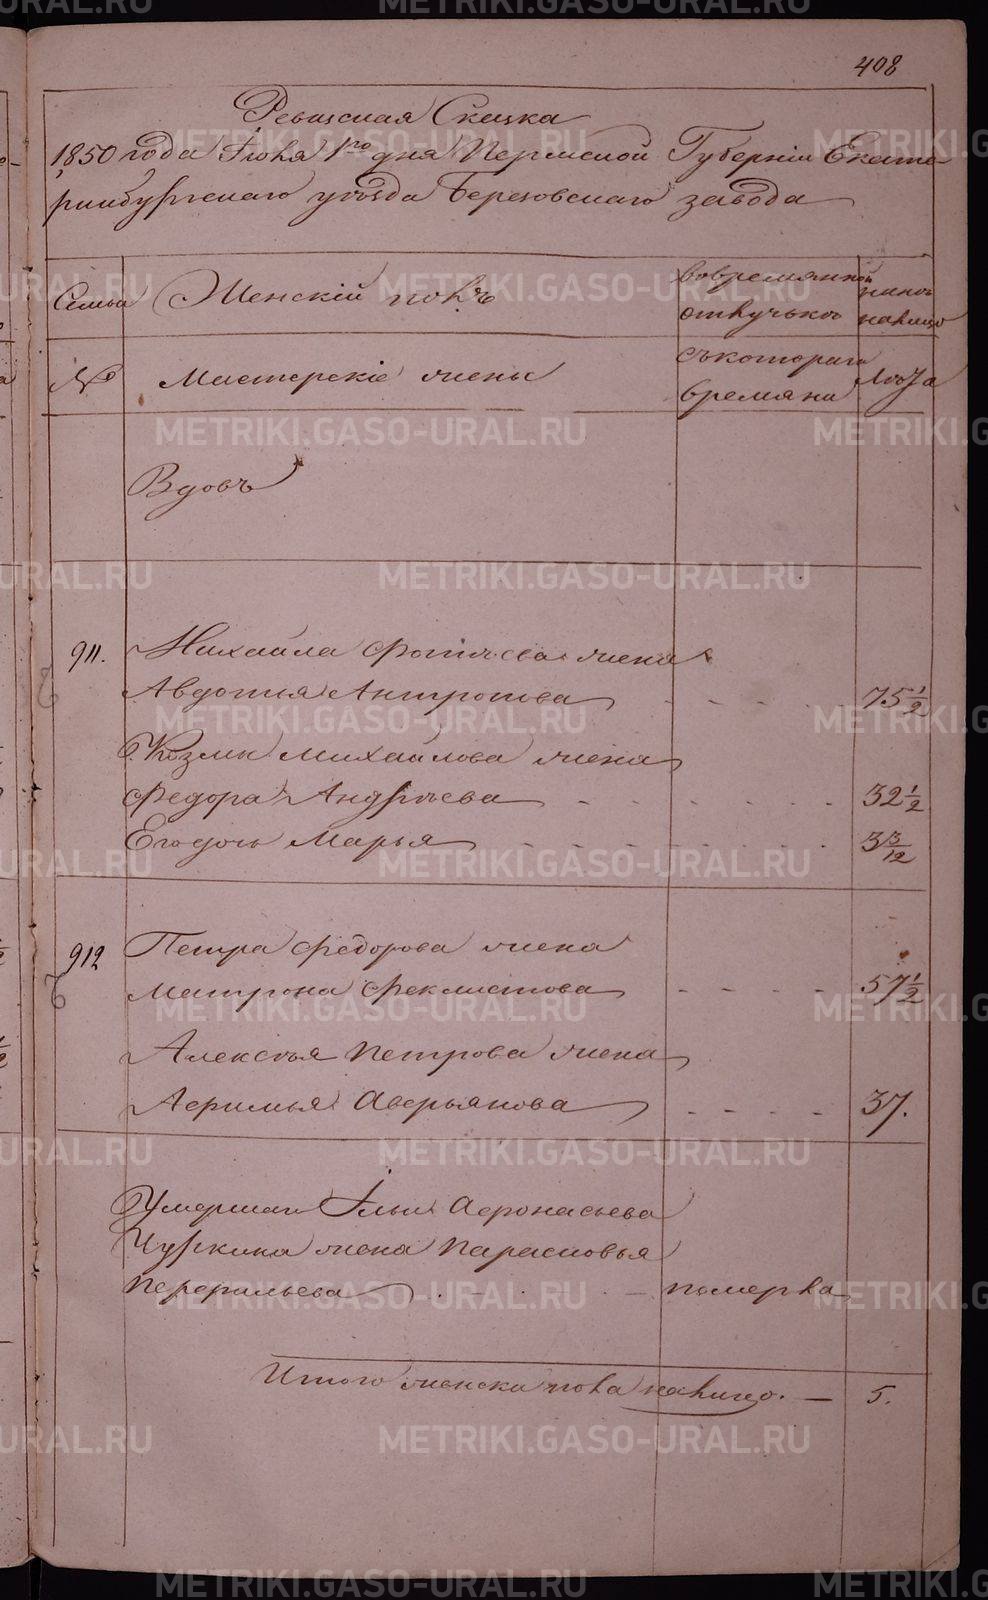 408
Ревизская Сказка
1850 года Июня 1го дня Пермской Губернiи Екате-
ринбургскаго уѣзда Березовскаго завода
Семьи
Женскiй полъ
вовремянной
отлучькѣ
ныне
налицо
№
Мастерскiе жены
съкотораго
времяни
лѣта
Вдовъ
911.
Михайла Фотиева жена
Авдотья Антропова
75 1/2
Козмы Михайлова жена
Федора Андреева
32 1/2
Его дочь Марья
3 3/12
912
Петра Федорова жена
Матрона Феклистова
57 1/2
Алексѣя Петрова жена
Афимья Аверьянова
37.
Умершаго Iльи Афонасьева
Чуркина жена Парасковья
Перфильева
померла
Итого женска пола налицо. — 5.
METRIKI.GASO-URAL.RU